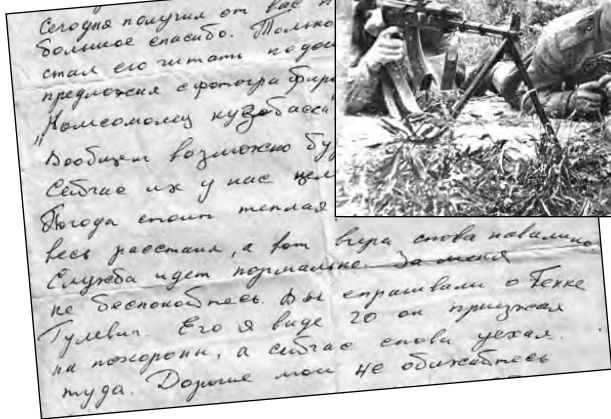 Сегодня получил от вас п
большое спасибо. Только
стал его читать подо
предложил сфотографиро
„Комсомолец кузбасса"
Вообщем возможно бу
Сейчас их у нас цел
Погода стоит теплая
весь расстаил, а вот вчера снова навалило.
Служба идет нормально. За меня
не беспокойтесь. Вы спрашивали о Генке
Гулевич. Его я виде 20 он приезжал
на похороны, а сейчас снова уехал.
туда. Дорогие мои не обижайтесь